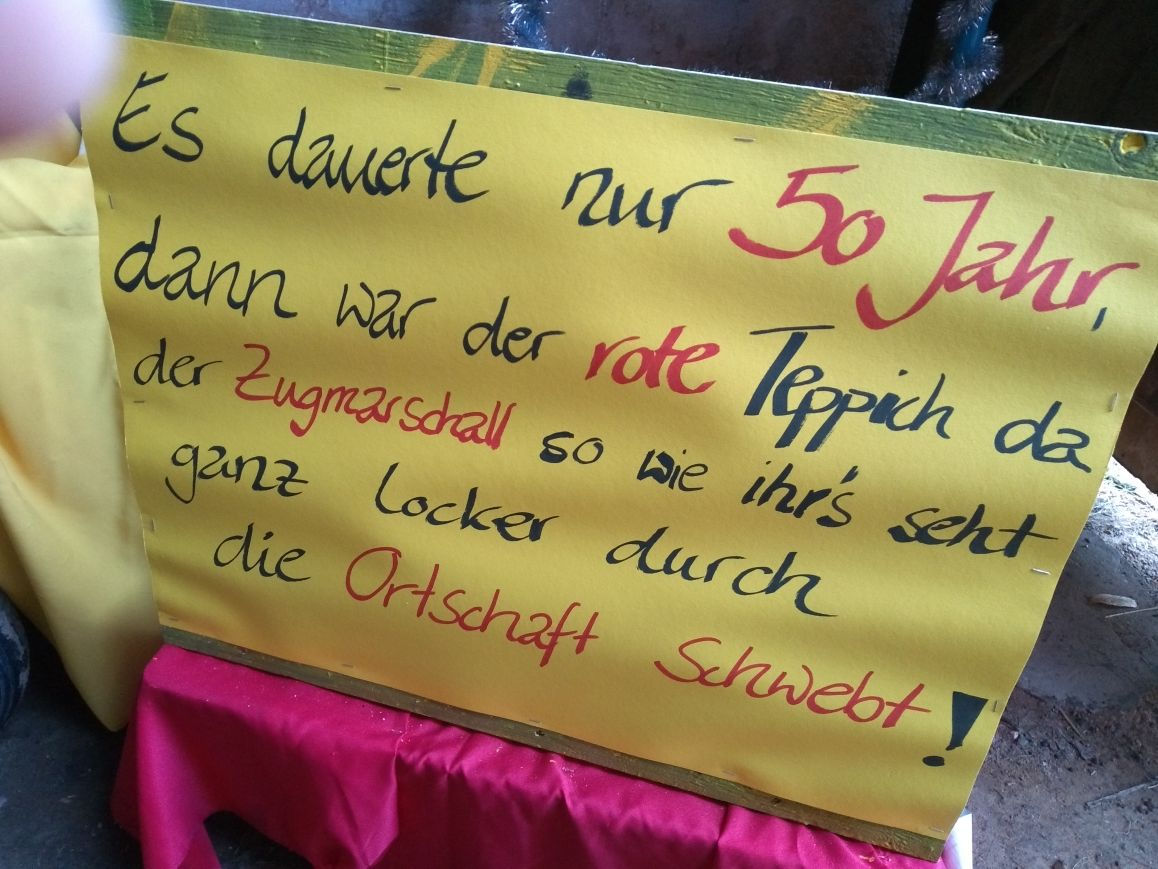 Es dauerte nur 50 Jahr,
dann war der rote Teppich da
der Zugmarschall so wie ihr's seht
ganz locker durch
die Ortschaft Schwebt!